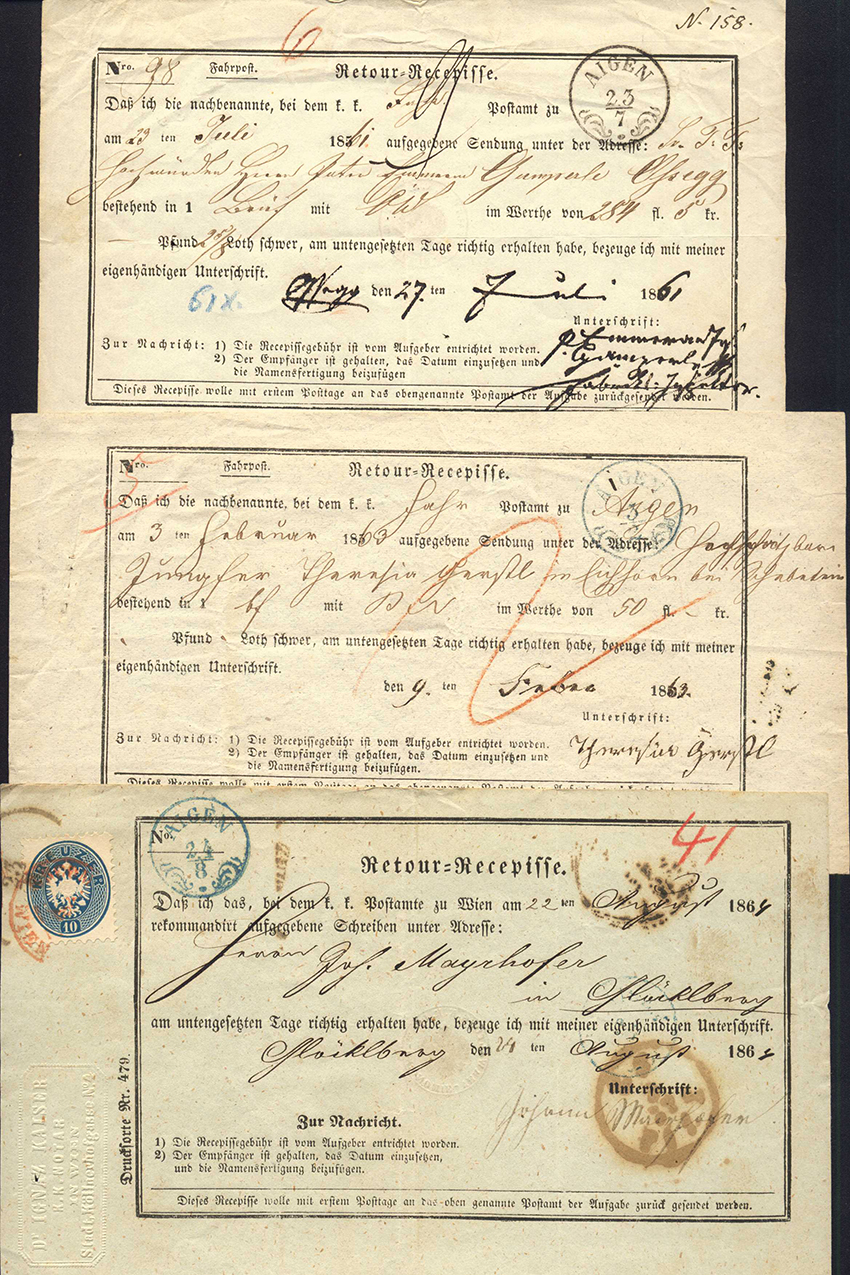 N. 158.
6
Nro. 98 Fahrpost. Retour-Recepisse.
AIGEN
23
7
Daß ich die nachbenannte, bei dem k. k. Postamt zu
am 23 ten Juli 1861 aufgegebene Sendung unter der Adresse:
Hochwürden Herrn Pater Gamperle Ossegg
bestehend in 1 Brief mit im Werthe von 284 fl. 5 kr.
Pfund Loth schwer, am untengesetzten Tage richtig erhalten habe, bezeuge ich mit meiner
eigenhändigen Unterschrift.
61x. Ossegg den 27. ten Juli 1861
Unterschrift:
Zur Nachricht: 1) Die Recepissegebühr ist vom Aufgeber entrichtet worden.
2) Der Empfänger ist gehalten, das Datum einzusetzen und
die Namensfertigung beizufügen
Dieses Recepisse wolle mit erstem Posttage an das obengenannte Postamt der Aufgabe zurückgesendet werden.
Nro. Fahrpost. Retour-Recepisse.
5
AIGEN
Daß ich die nachbenannte, bei dem k. k. Fahr Postamt zu Aigen
am 3 ten Februar 1863 aufgegebene Sendung unter der Adresse:
Jungfer Theresia Gerstl in Eichhorn bei
bestehend in 1 bf mit im Werthe von 50 fl. - kr.
Pfund Loth schwer, am untengesetzten Tage richtig erhalten habe, bezeuge ich mit meiner
eigenhändigen Unterschrift.
den 9. ten Feber 1863.
Unterschrift:
Theresia Gerstl
Zur Nachricht: 1) Die Recepissegebühr ist vom Aufgeber entrichtet worden.
2) Der Empfänger ist gehalten, das Datum einzusetzen und
die Namensfertigung beizufügen.
Dieses Recepisse wolle mit erstem Posttage an das obengenannte Postamt der Aufgabe
No.
AIGEN
24
8
41
KREUZER
10
WIEN
Retour-Recepisse.
Daß ich das, bei dem k. k. Postamte zu Wien am 22 ten August 1864
rekommandirt aufgegebene Schreiben unter Adresse:
Herrn Joh. Mayrhofer
in Glöcklberg
am untengesetzten Tage richtig erhalten habe, bezeuge ich mit meiner eigenhändigen Unterschrift.
Glöcklberg den 24 ten August 1864
Unterschrift:
Johann Mairhofer
Zur Nachricht.
1) Die Recepissegebühr ist vom Aufgeber entrichtet worden.
2) Der Empfänger ist gehalten, das Datum einzusetzen,
und die Namensfertigung beizufügen.
Dieses Recepisse wolle mit erstem Posttage an das oben genannte Postamt der Aufgabe zurück gesendet werden.
Drucksorte Nr. 479.
Dr IGNAZ KAISER
K.K. NOTAR
IN WIEN
Stadt,